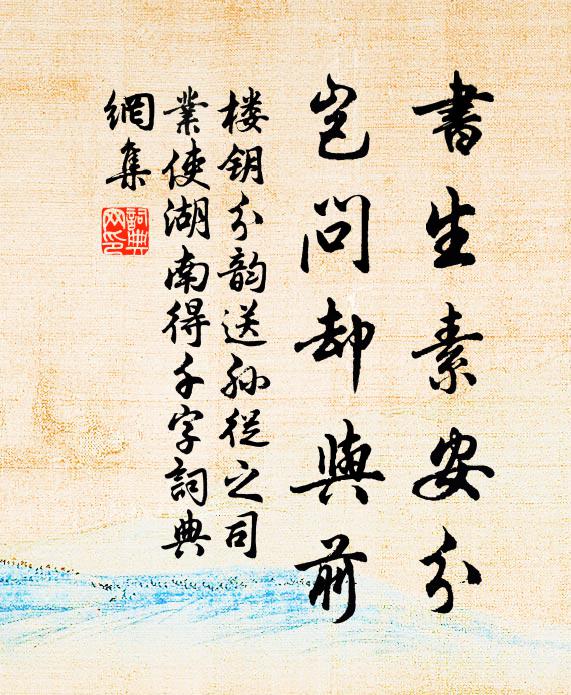 書生素安分
豈問却與前
楼钥分韵送孙從之司
業使湖南得千字詞典
網集
詞典網印